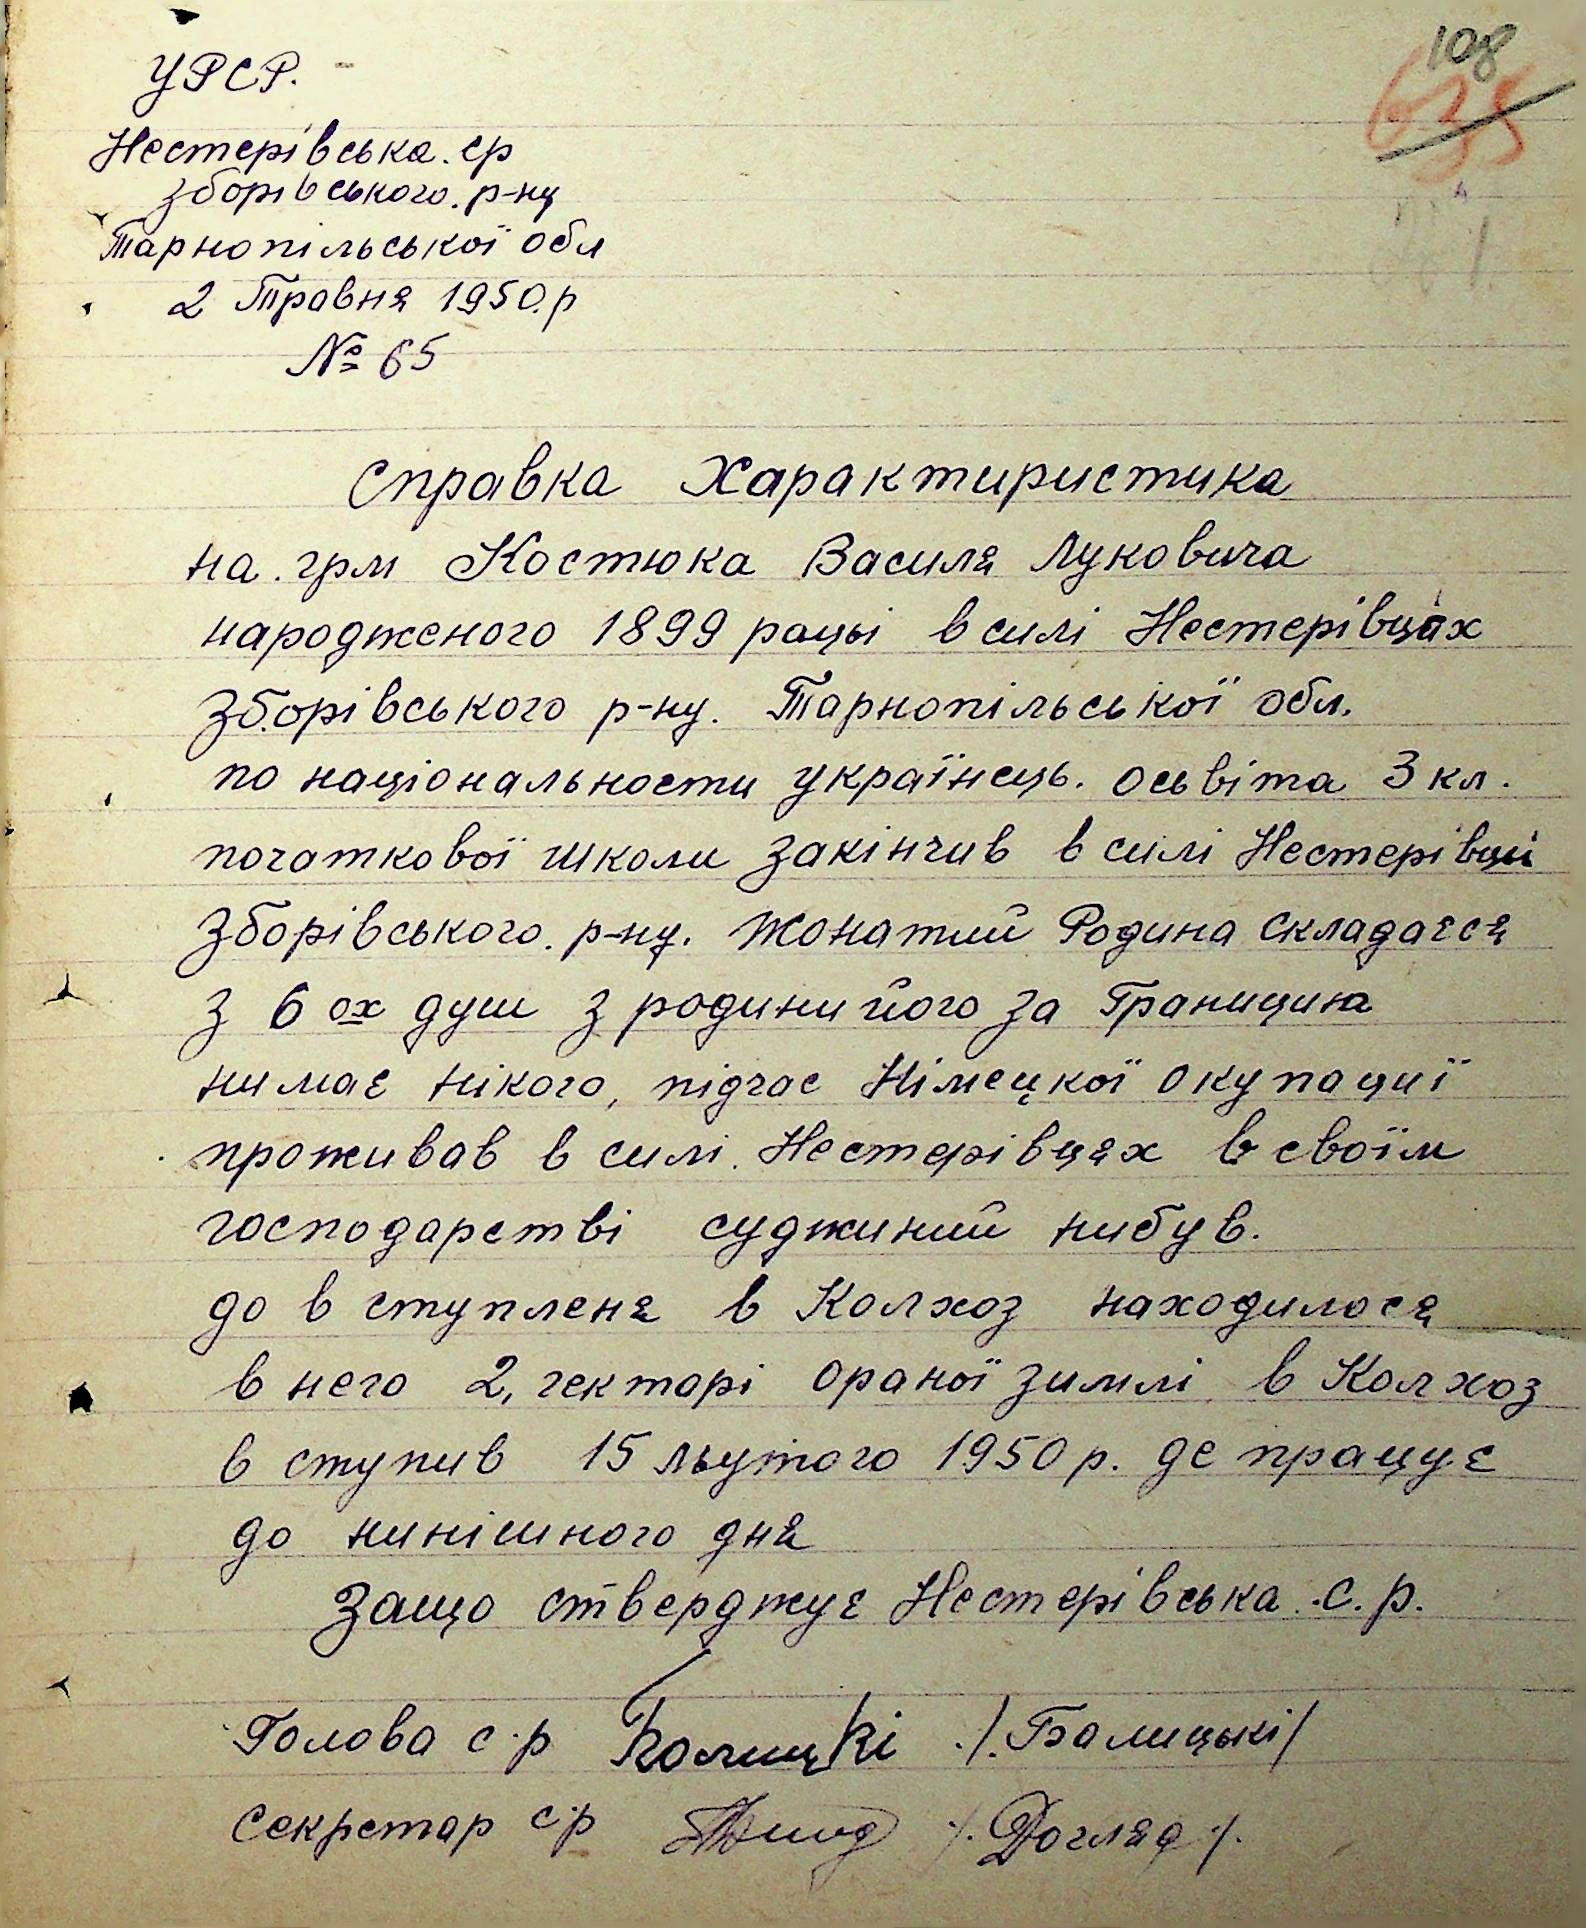 УРСР.
108
Нестерівська. ср
Зборівського. р-ну
Тарнопільської обл
2 Травня 1950.р
№ 65
Справка Характиристика
на. грм Костюка Василя Луковича
народженого 1899 рацы в силі Нестерівцах
Зборівського р-ну. Тарнопільської обл.
по національности українець. осьвіта 3 кл.
початкової школи закінчив в силі Нестерівци
Зборівського. р-ну. жонатий Родина складаєся
з 6 ох душ з родини його за Границию
нимає нікого, підчас Німецкої окупациї
проживав в силі. Нестерівцях в своїм
господарстві суджиний нибув.
до в ступленя в Колхоз находилося
в него 2, гектарі ораної зимлі в Колхоз
в ступив 15 льутого 1950 р. де працує
до нинішного дня
Защо стверджує Нестерівська. с. р.
Голова с.р Балицкі /. Балицькі/
секретар с.р /. Догляд /.